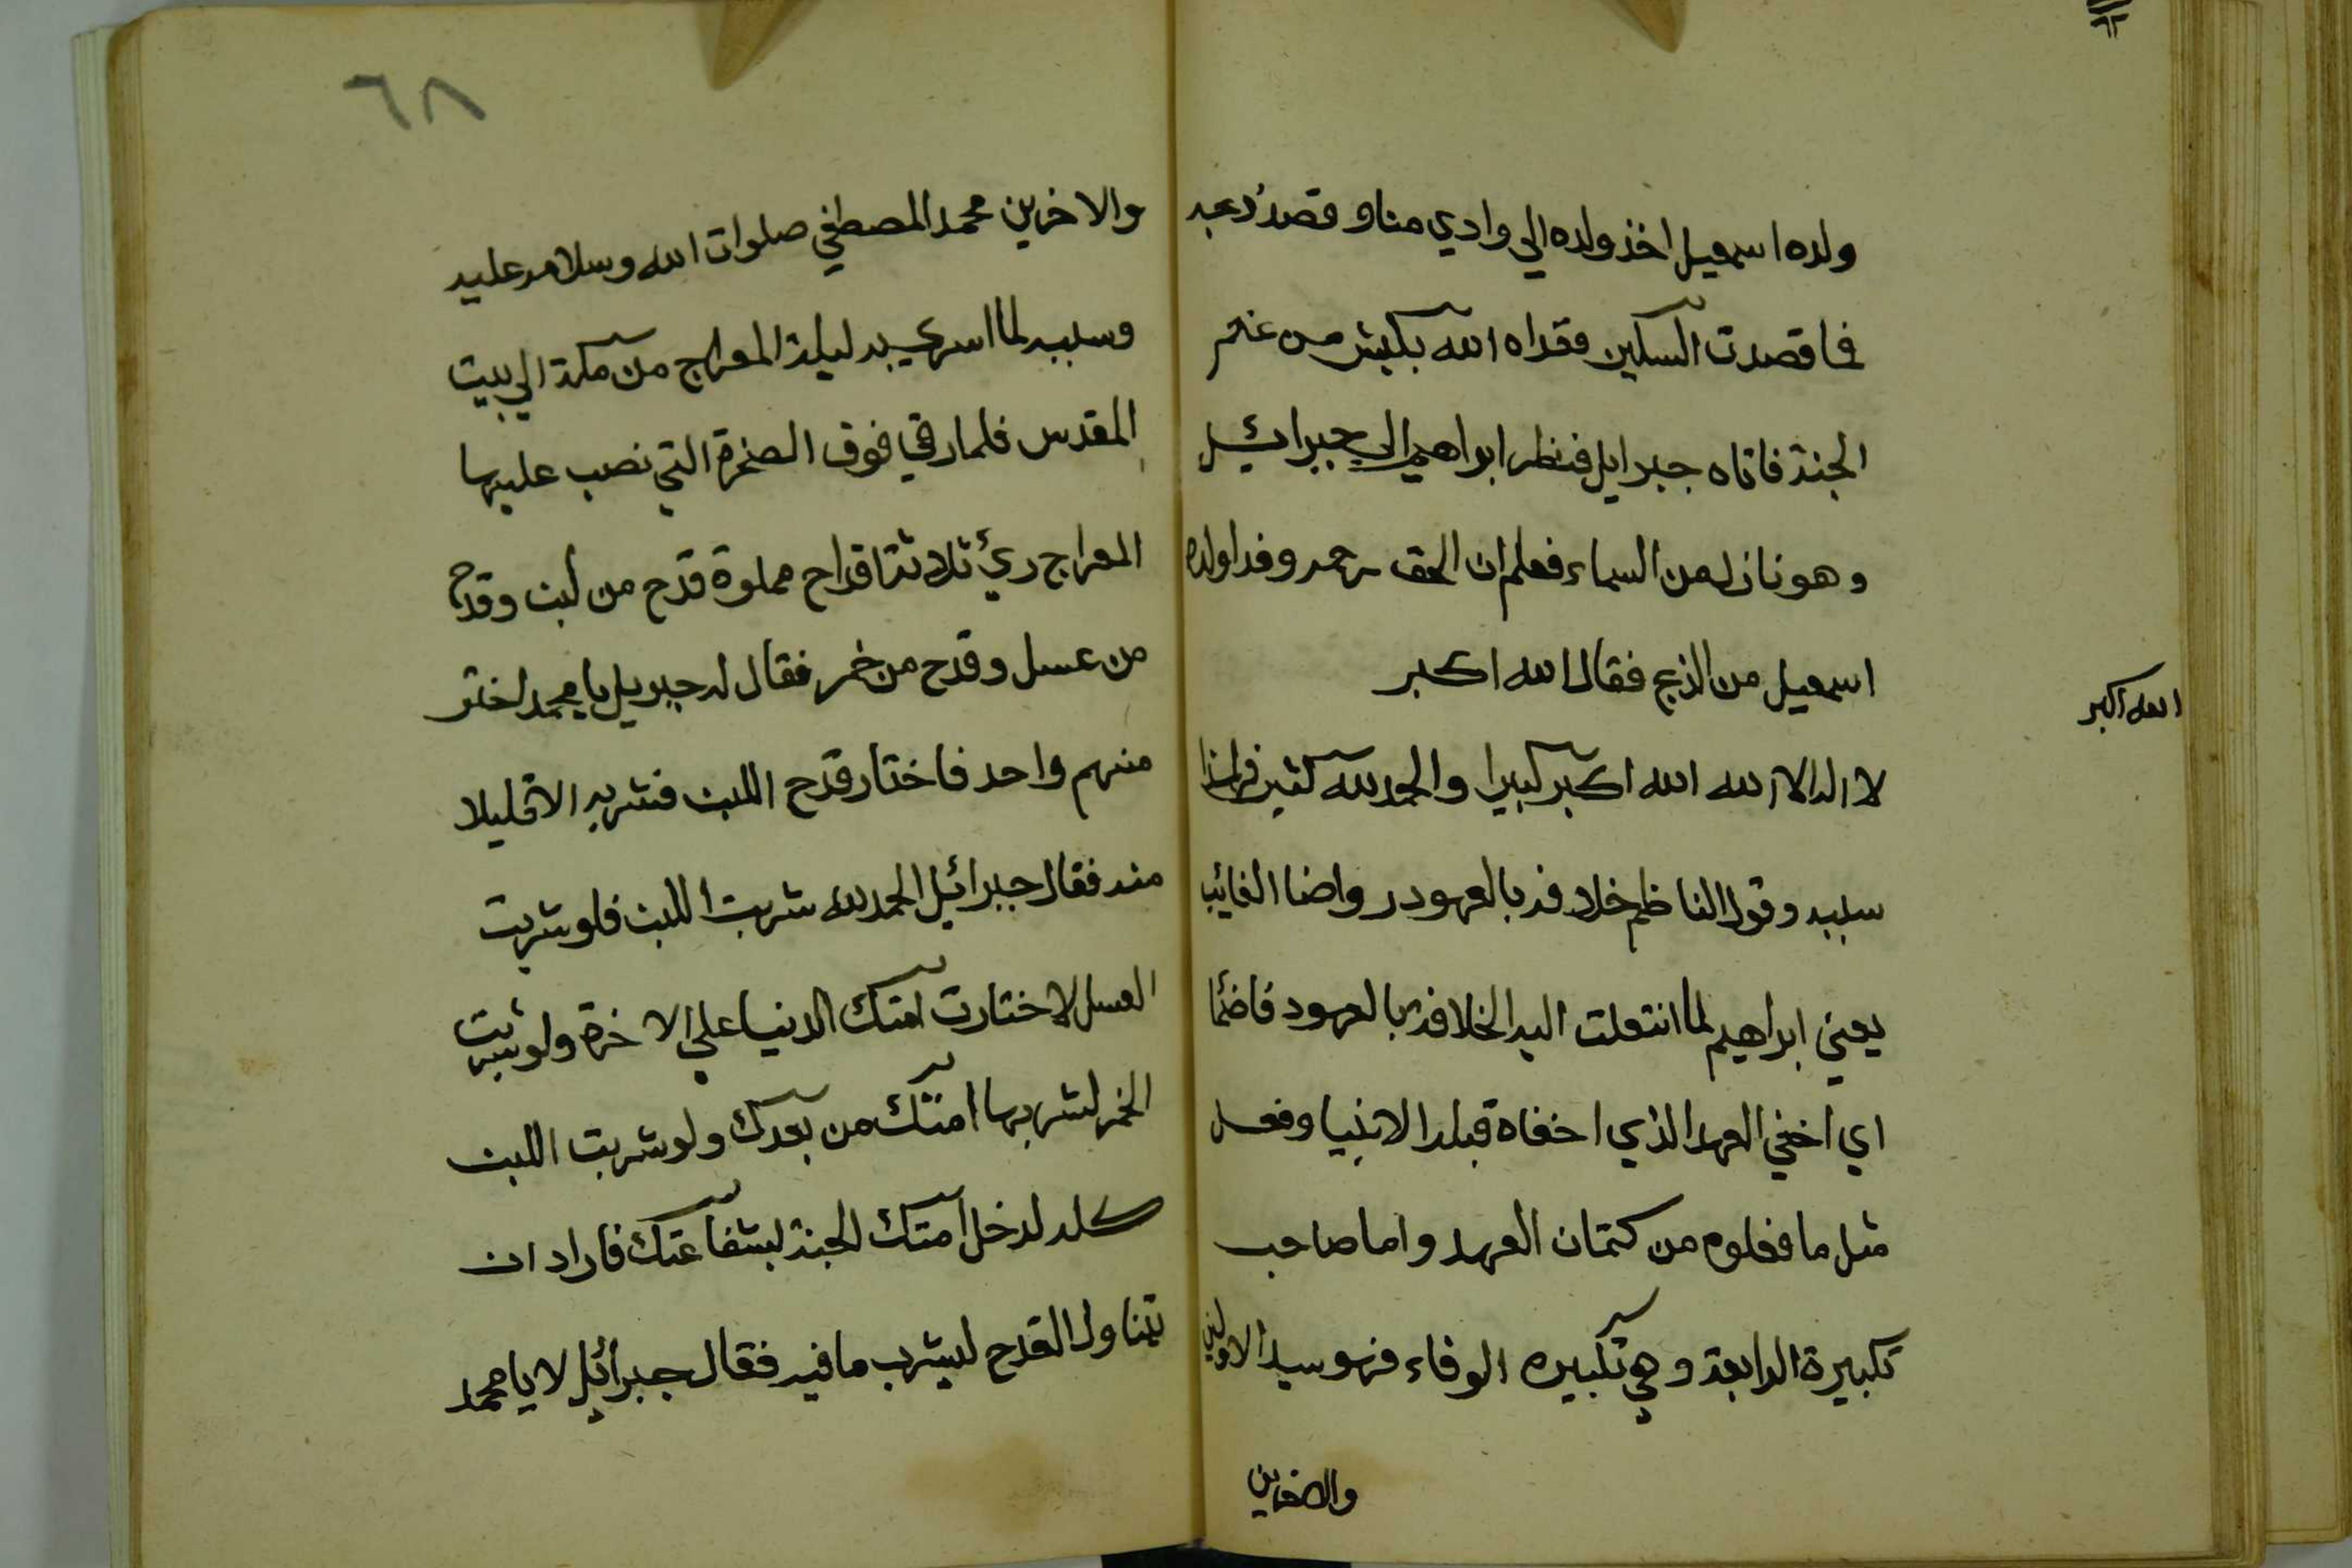 ولده اسمعيل اخذ ولده الي وادي منا و قصد ذبحه
فما قصدت السكين فقداه الله بكبش من غنم
الجنة فاتاه جبرايل فنظر ابراهيم الي جبرائيل
وهو نازل من السماء فعلم ان الحق رحمه وفدا ولده
اسمعيل من الذبح فقال الله اكبر
الله اكبر
لا اله الا الله الله اكبر كبيرا والحمد لله كثير فهذا
سببه وقول الناظم خلافه بالعهود واضا الغائب
يعني ابراهيم لما انتعلت اليه الخلافه بالعهود فاضئا
اي اخفي العهد الذي اخفاه قبله الانبيا وفعل
مثل ما فعلوه من كتمان العهد واما صاحب
تكبيرة الرابعة وهي تكبيره الوفاء فهو سيد الاولين
والاخرين
٦٨
والاخرين محمد المصطفي صلوات الله وسلامه عليه
وسببه لما اسري به ليلة المعراج من مكة الي بيت
المقدس فلما رقي فوق الصخرة التي نصب عليها
المعراج رئ ثلاثة اقداح مملوة قدح من لبن وقدح
من عسل وقدح من خمر فقال له جبريل يا محمد اختر
منهم واحد فاختار قدح اللبن فشربه الا قليلا
منه فقال جبرائيل الحمد لله شربت اللبن فلو شربت
العسل لاختارت امتك الدنيا علي الاخرة ولو شربت
الخمر لشربها امتك من بعدك ولو شربت اللبن
كله لدخل امتك الجنة بشفاعتك فاراد ان
يتناول القدح ليشرب ما فيه فقال جبرائيل لا يا محمد